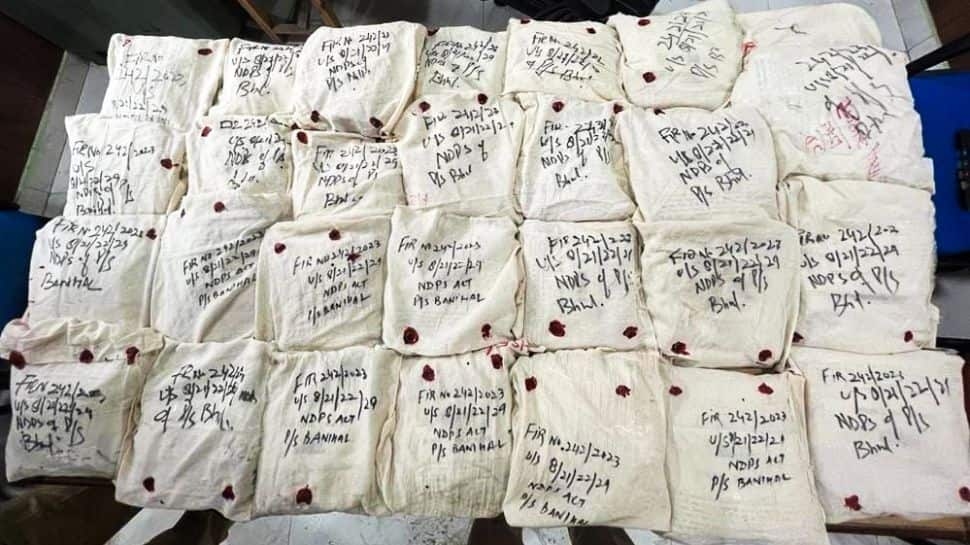 FIR No
242/2023
8/21/22/29
FIR No 242/20
U/S 8/21/22/29
NDPS of P/S
Bhl.
FIR No 242/23
U/S 8/21/22/29
NDPS of
P/S Bhl.
U/S 8/21/22/29
NDPS of
P/S Bhl.
FIR No 242/23
U/S 8/21/22/29
NDPS
of P/S
Bhl.
8/21/22
P/S
FIR No 242/2023
U/S
8/21/22/29
NDPS of P/S
Banihal
U/S 8/21/22/29
NDPS of P/S
FIR 242/2023
U/S 8/21/22/29
NDPS of P/S
Bhl.
FIR No 242/2023
U/S 8/21/22/29
NDPS of
P/S Bhl
U/S 8/21/22/29
NDPS of P/S
Bhl.
FIR No. 242/2023
U/S 8/21/22/29
NDPS of P/S
Bhl.
FIR No 242/2023
U/S 8/21/22/29
NDPS of P/S
BANIHAL
FIR No 242/2023
U/S 8/21/22/29
NDPS ACT
P/S BANIHAL
FIR No 242/2023
U/S 8/21/22/29
NDPS ACT
P/S BANIHAL
FIR No 242/2023
U/S 8/21/22/29
NDPS ACT
P/S BANIHAL
FIR 242/223
U/S 8/21/22/29
NDPS of P/S
Bhl.
FIR No. 242/2023
U/S 8/21/22/29
NDPS of P/S
Bhl.
FIR No 242/202
U/S 8/21/22/29
NDPS of P/S
Bhl.
FIR No 242/2023
U/S 8/21/22/29
NDPS of P/S
Bhl.
FIR No 242/23
U/S 8/21/22/29 NDPS
of P/S Bhl.
FIR 242/2023
U/S 8/21/22/29
NDPS ACT
P/S BANIHAL
FIR No 242/2023
U/S 8/21/22/29
NDPS ACT
P/S BANIHAL
FIR No. 242/2023
U/S 8/21/22/29
NDPS ACT
P/S BANIHAL
FIR 242/2023
U/S 8/21/22/29
NDPS ACT
P/S BANIHAL
FIR 242/2023
U/S 8/21/22/29
NDPS of P/S
Bhl.